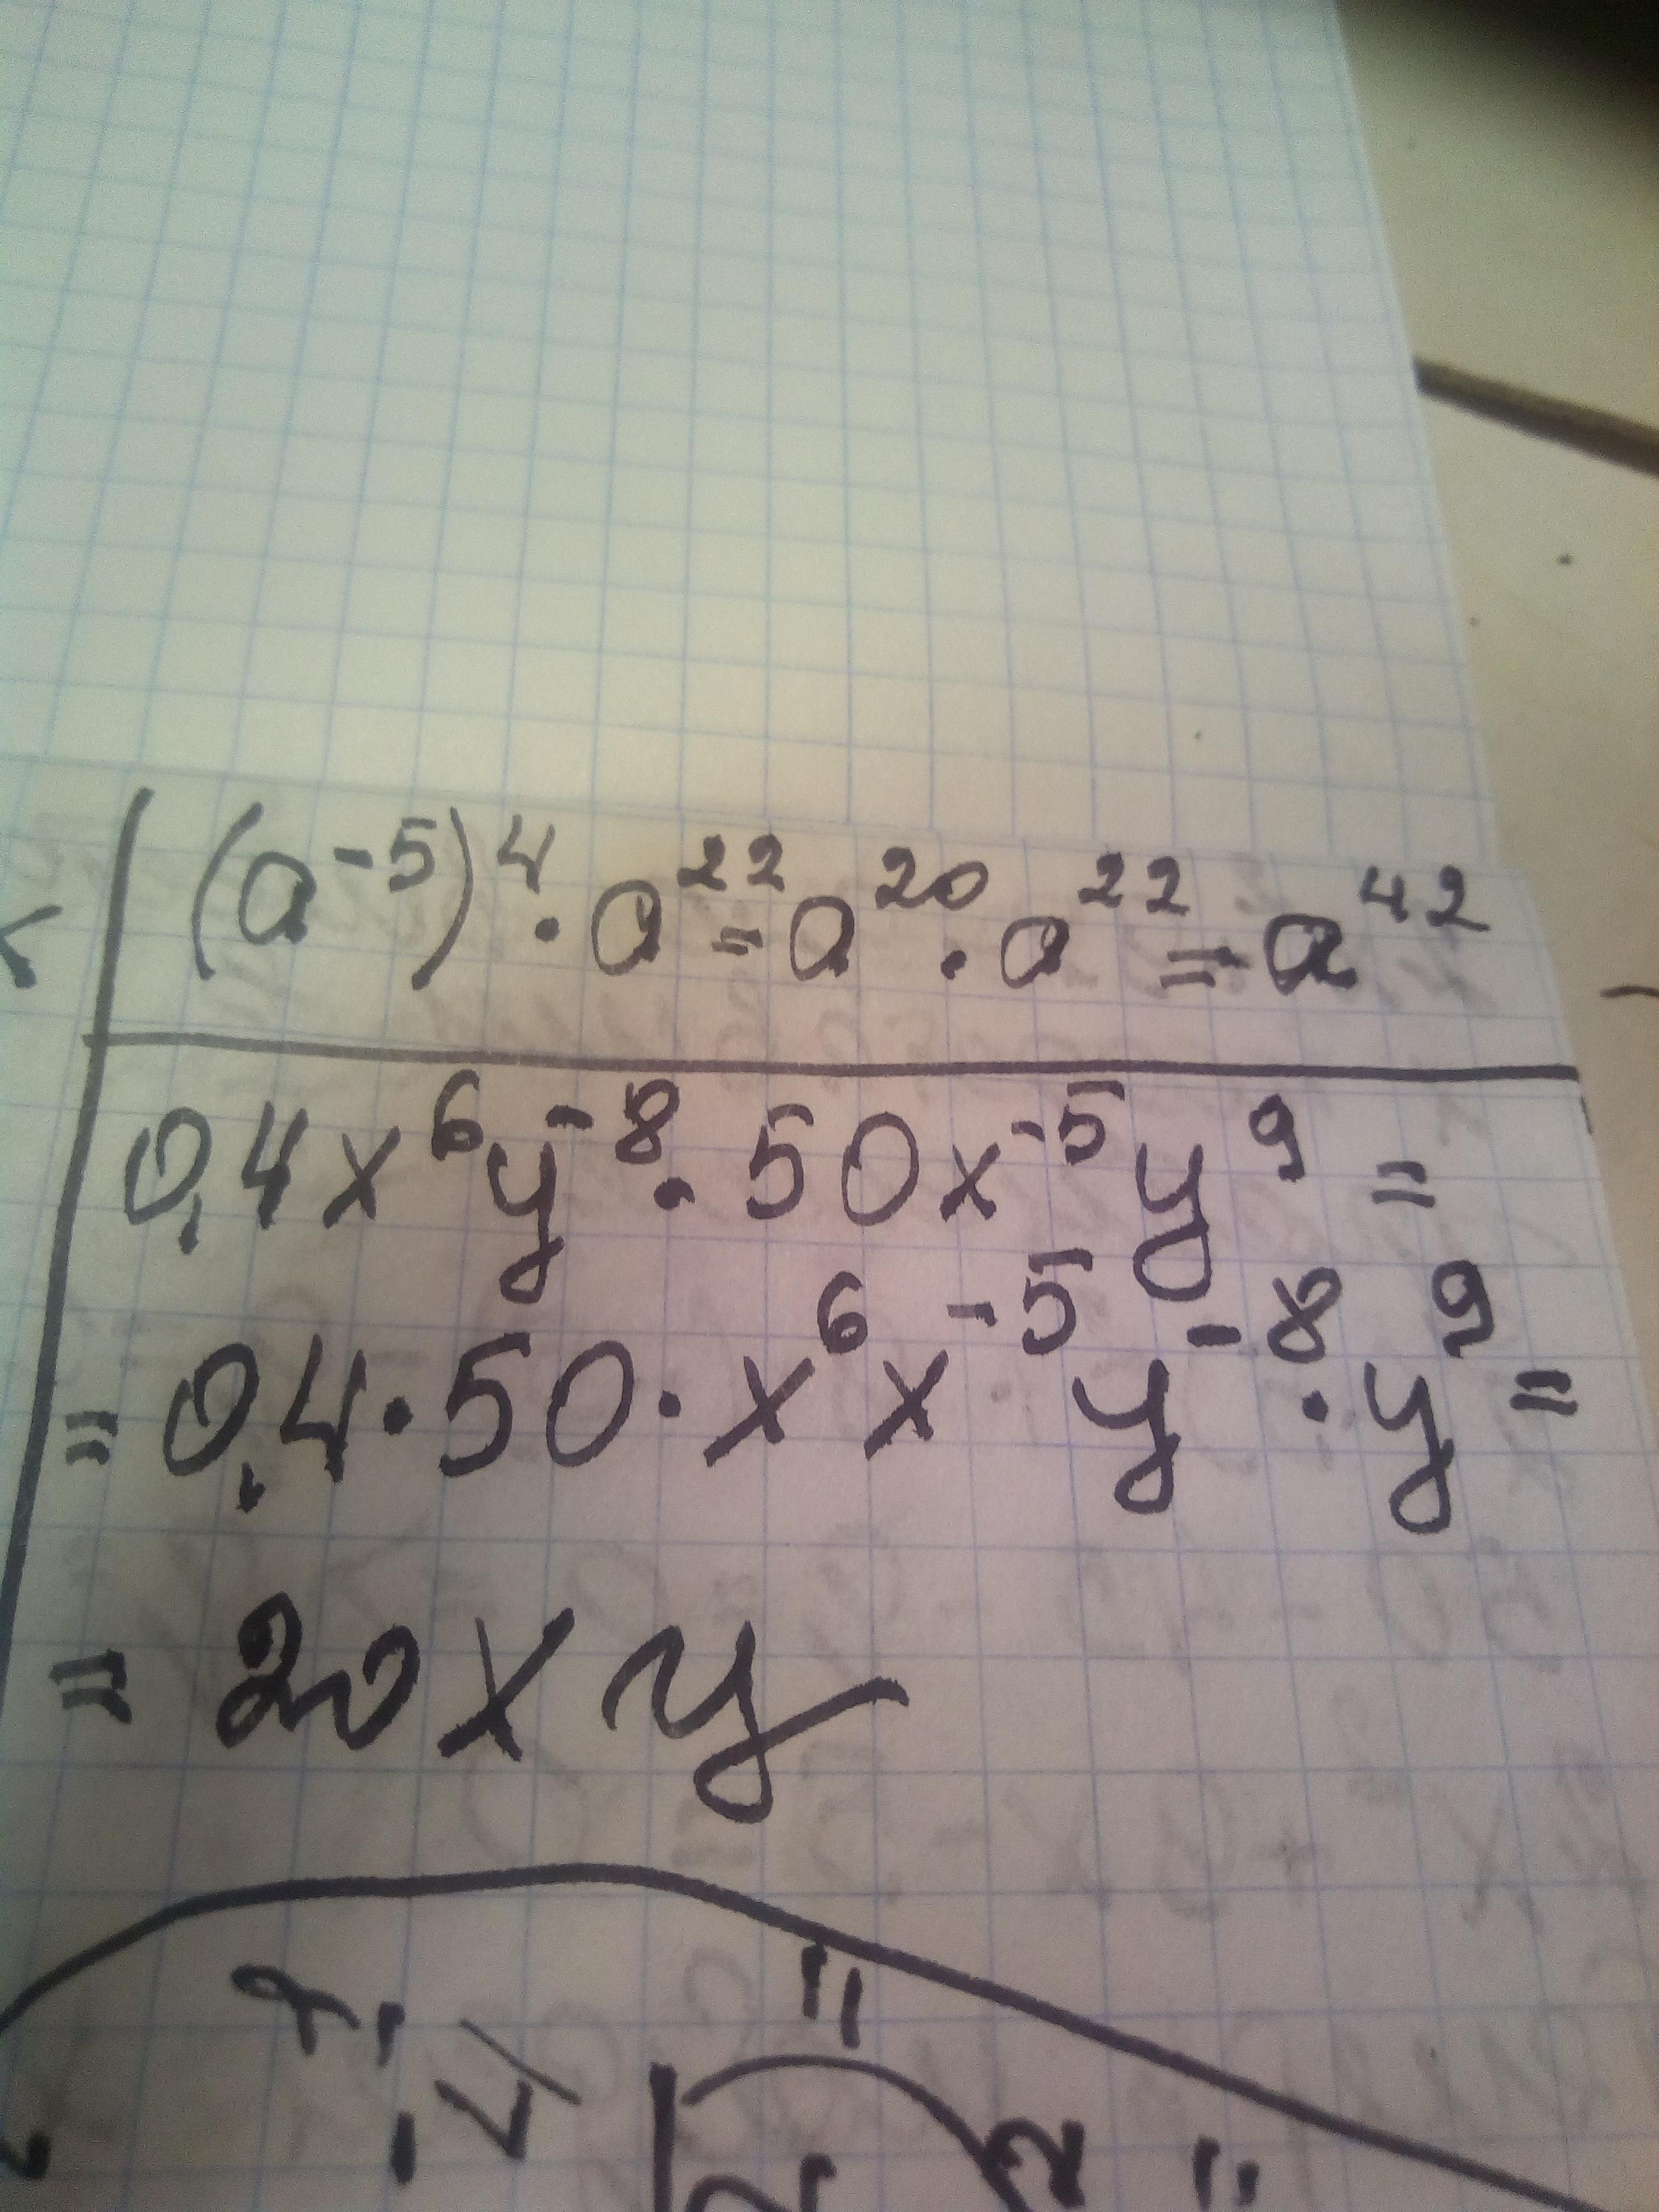 (a⁻⁵)⁴ · a²² = a²⁰ · a²² = a⁴²
0,4x⁶y⁻⁸ · 50x⁻⁵y⁹ =
= 0,4 · 50 · x⁶x⁻⁵y⁻⁸ · y⁹ =
= 20xy